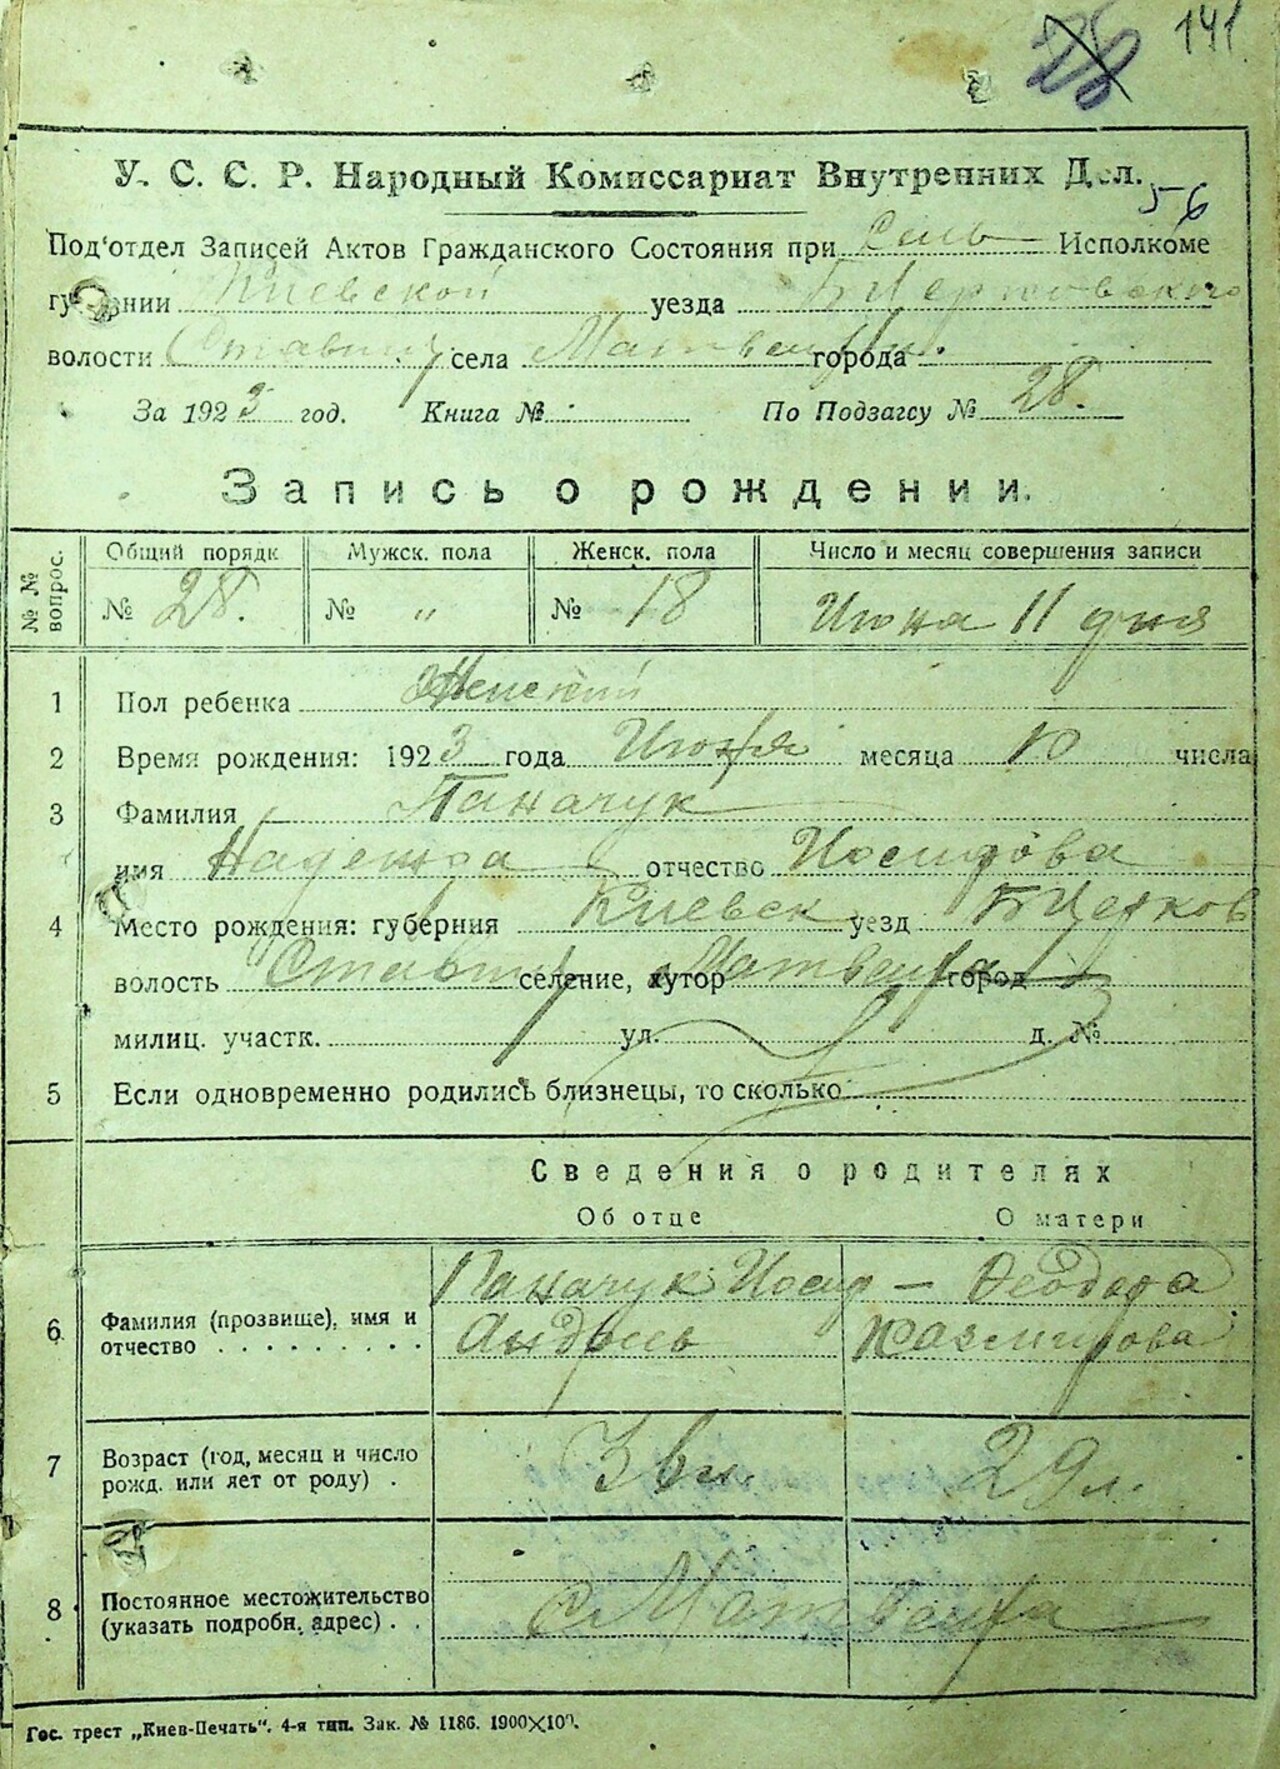 141
28
У. С. С. Р. Народный Комиссариат Внутренних Дел.
56
Под'отдел Записей Актов Гражданского Состояния при Сель Исполкоме
губернии Киевской уезда Б Церковского
волости села города
За 1923 год. Книга № По Подзагсу № 28.
Запись о рождении.
№ № вопрос. Общий порядк Мужск. пола Женск. пола Число и месяц совершения записи
№ 28. № „ № 18 Июня 11 дня
1 Пол ребенка Женский
2 Время рождения: 1923 года Июня месяца 10 числа
3 Фамилия Паначук
имя Надежда отчество Иосифова
4 Место рождения: губерния Киевск уезд Б Церков
волость селение, хутор город
милиц. участк. ул. д. №
5 Если одновременно родились близнецы, то сколько
Сведения о родителях
Об отце О матери
6 Фамилия (прозвище), имя и отчество Паначук Иосиф — Феодора
Казмирова
7 Возраст (год, месяц и число рожд. или лет от роду) . 29 л.
8 Постоянное местожительство (указать подробн. адрес) . .
Гос. трест „Киев-Печать“. 4-я тип. Зак. № 1186. 1900×100.